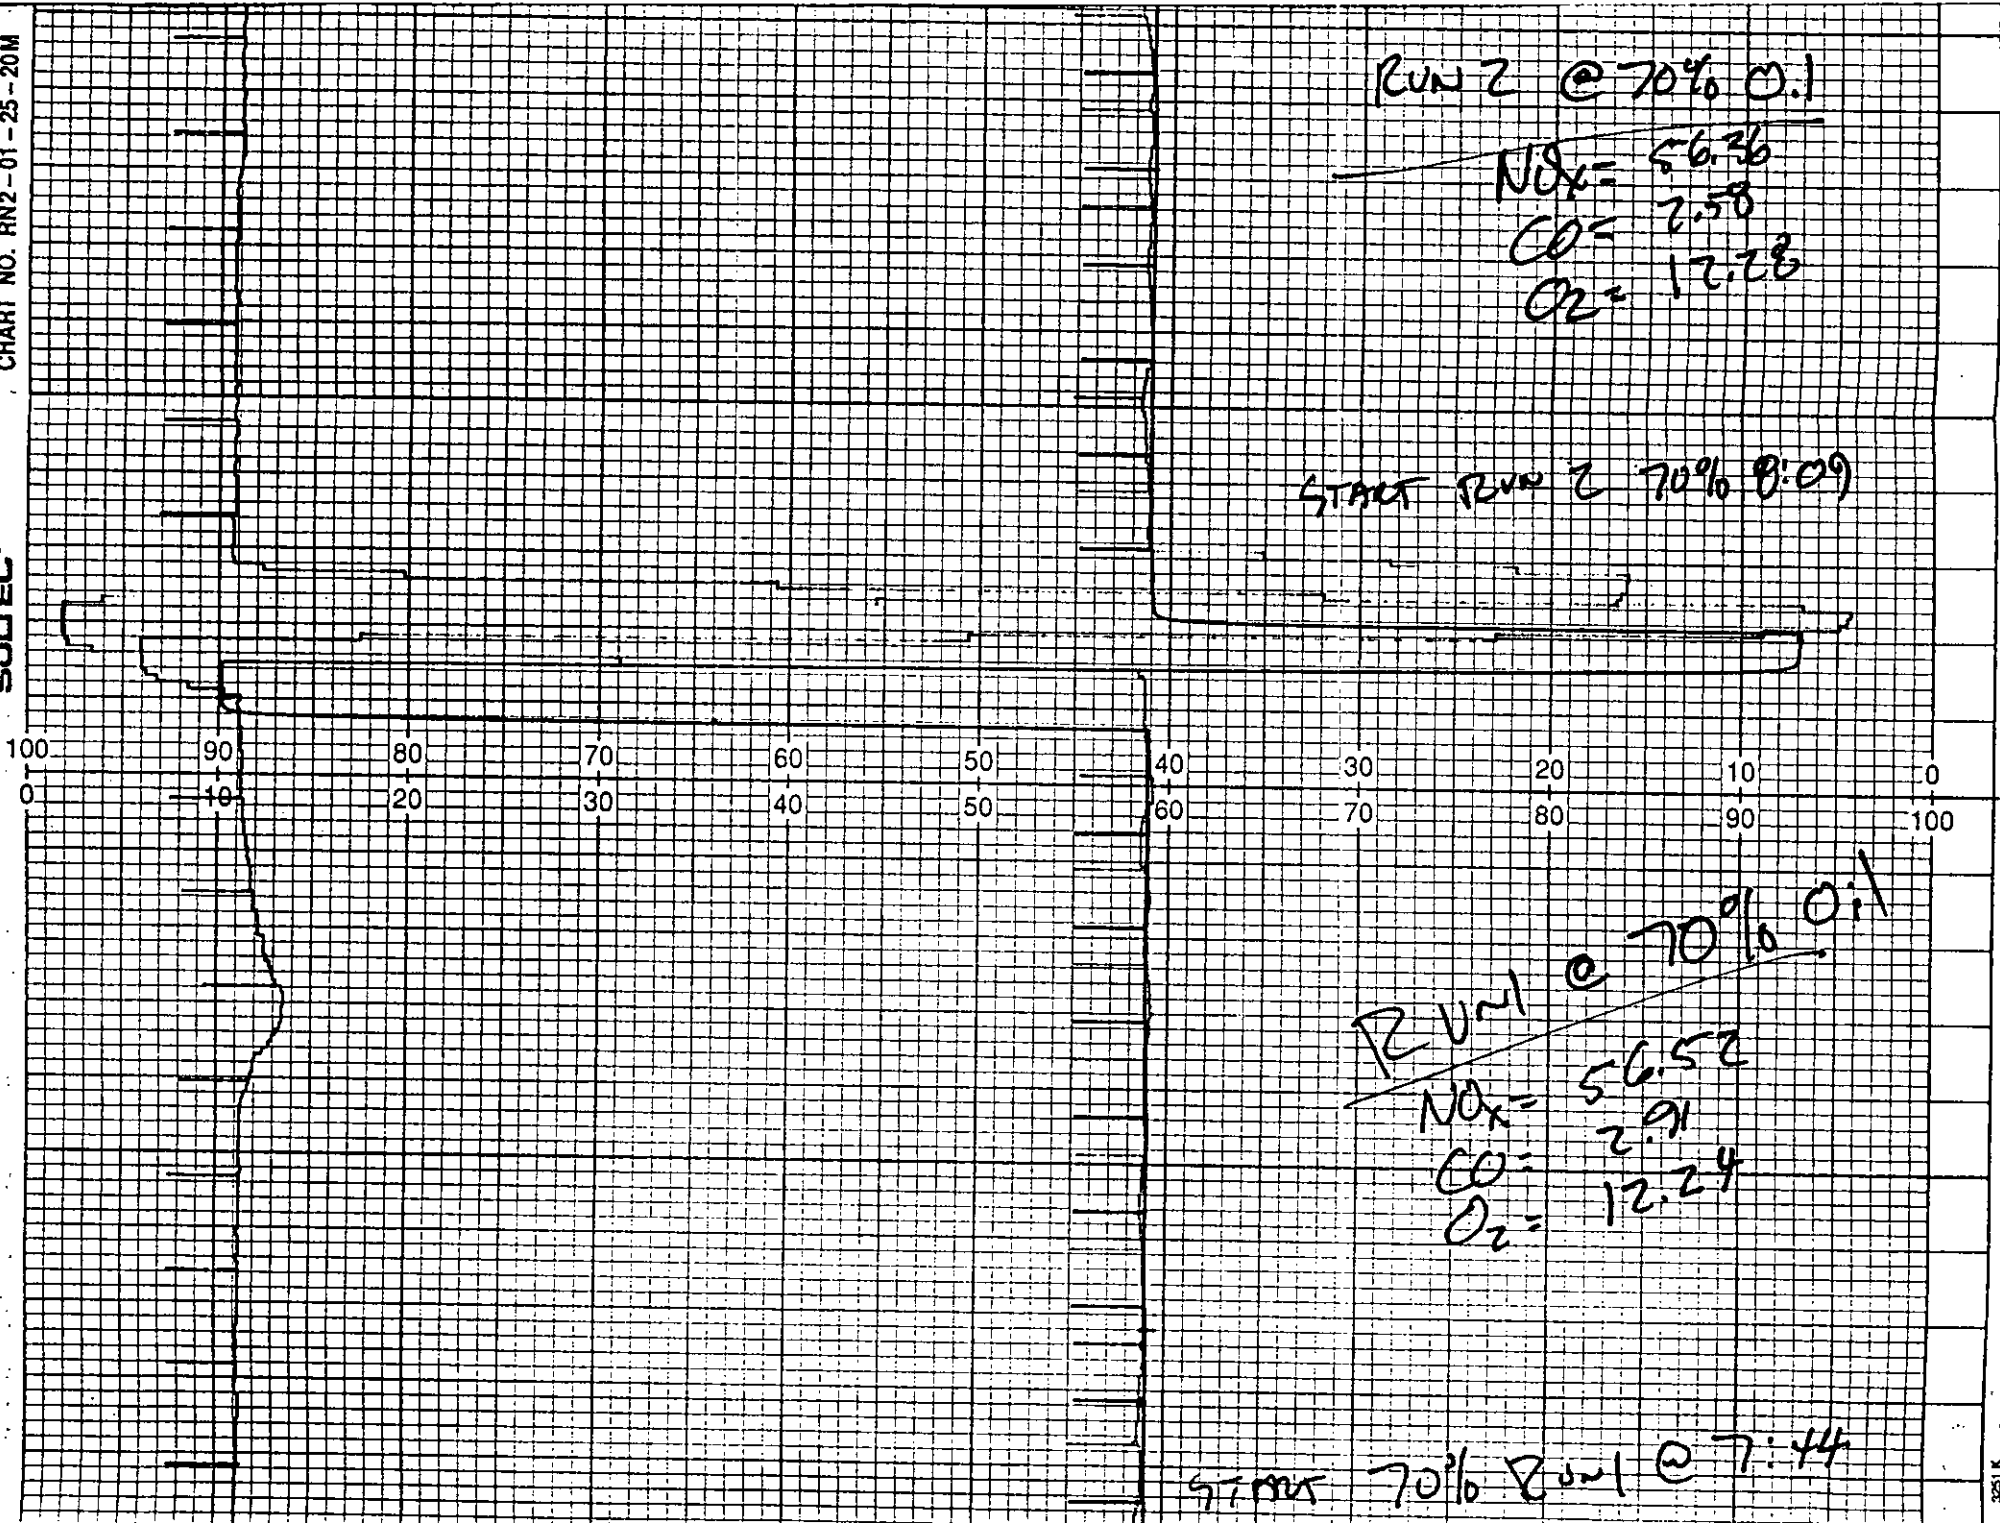 CHART NO. RN2-01-25-20M
RUN 2 @ 70% Oil
NOx = 56.36
CO = 2.58
O2 = 12.28
START RUN 2 70% 8:09
100 90 80 70 60 50 40 30 20 10 0
0 10 20 30 40 50 60 70 80 90 100
RUN 1 @ 70% Oil
NOx = 56.52
CO = 2.91
O2 = 12.24
START 70% RUN 1 @ 7:44